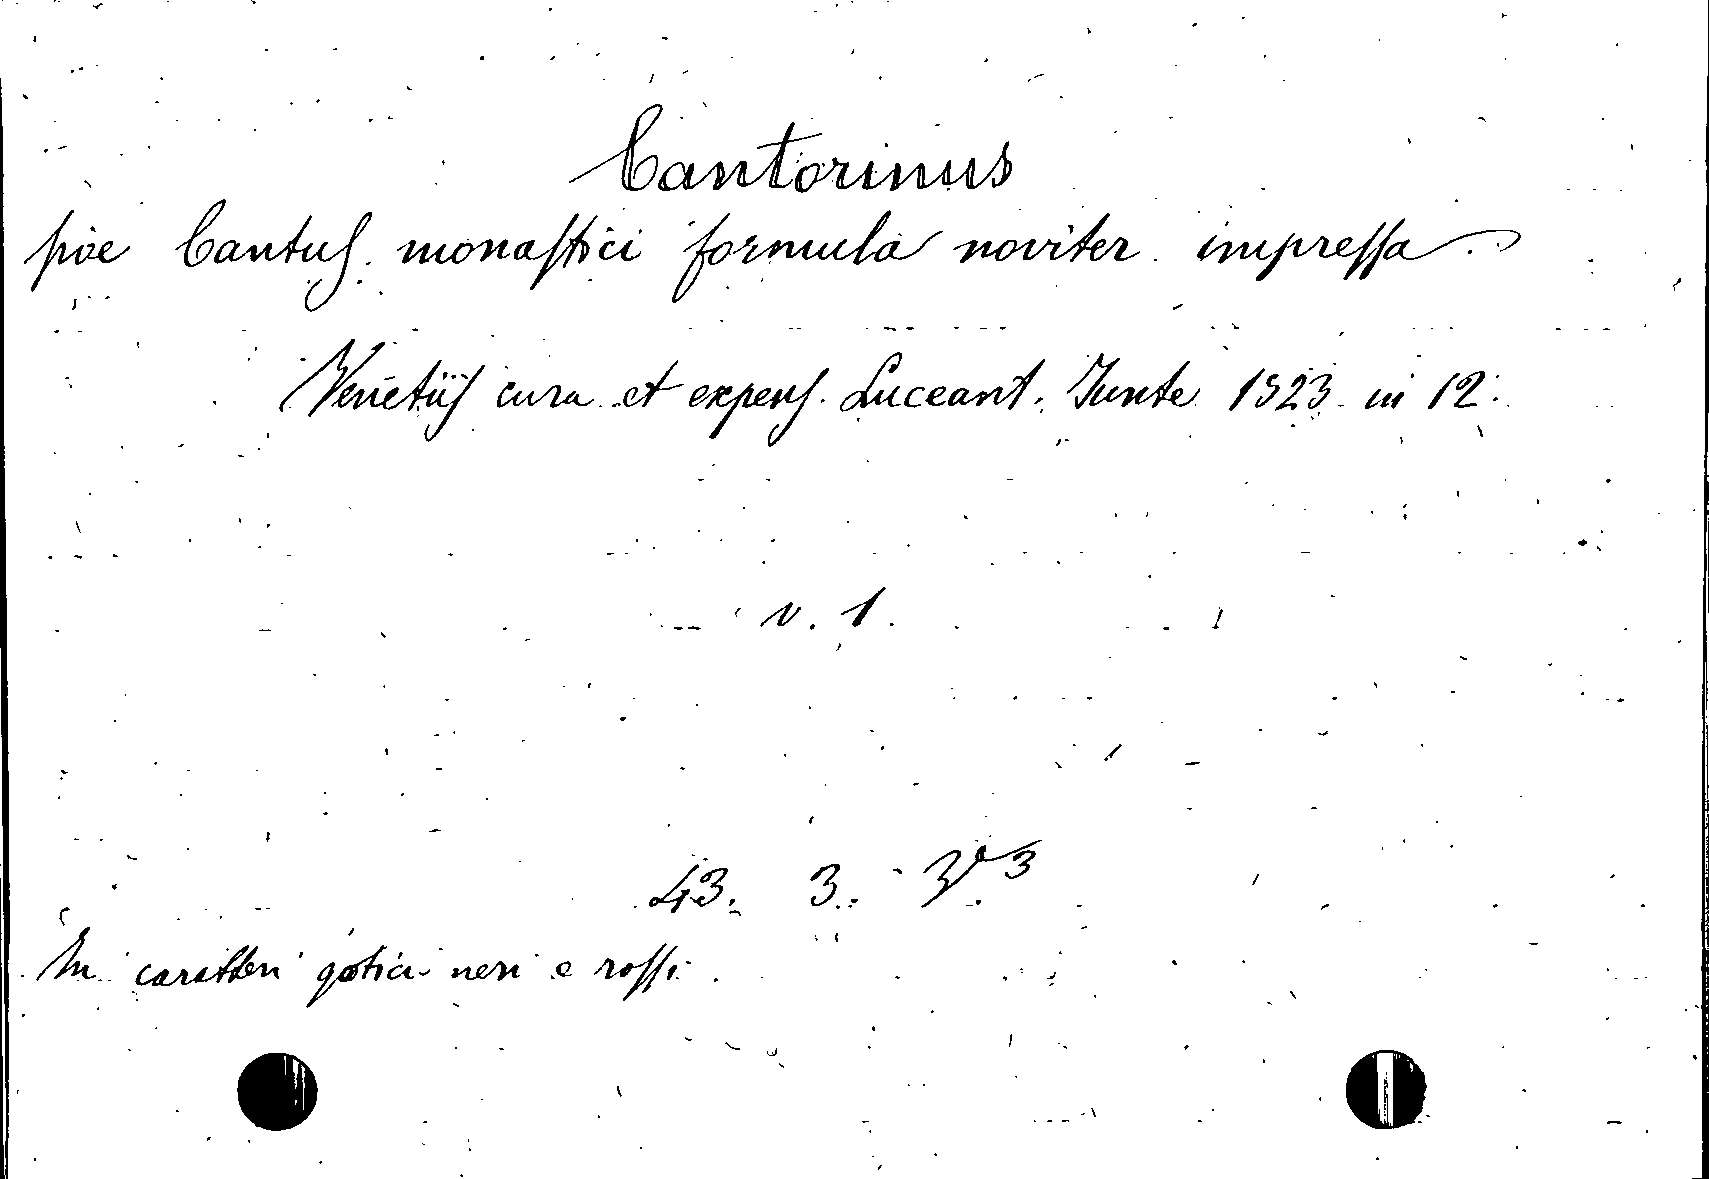 Cantorinus
sive Cantus monastici formula noviter impressa
Venetiis cura et expens. Luceant. Junte 1523 in 12.
v. 1.
43. 3.
In caratteri gotici neri e rossi